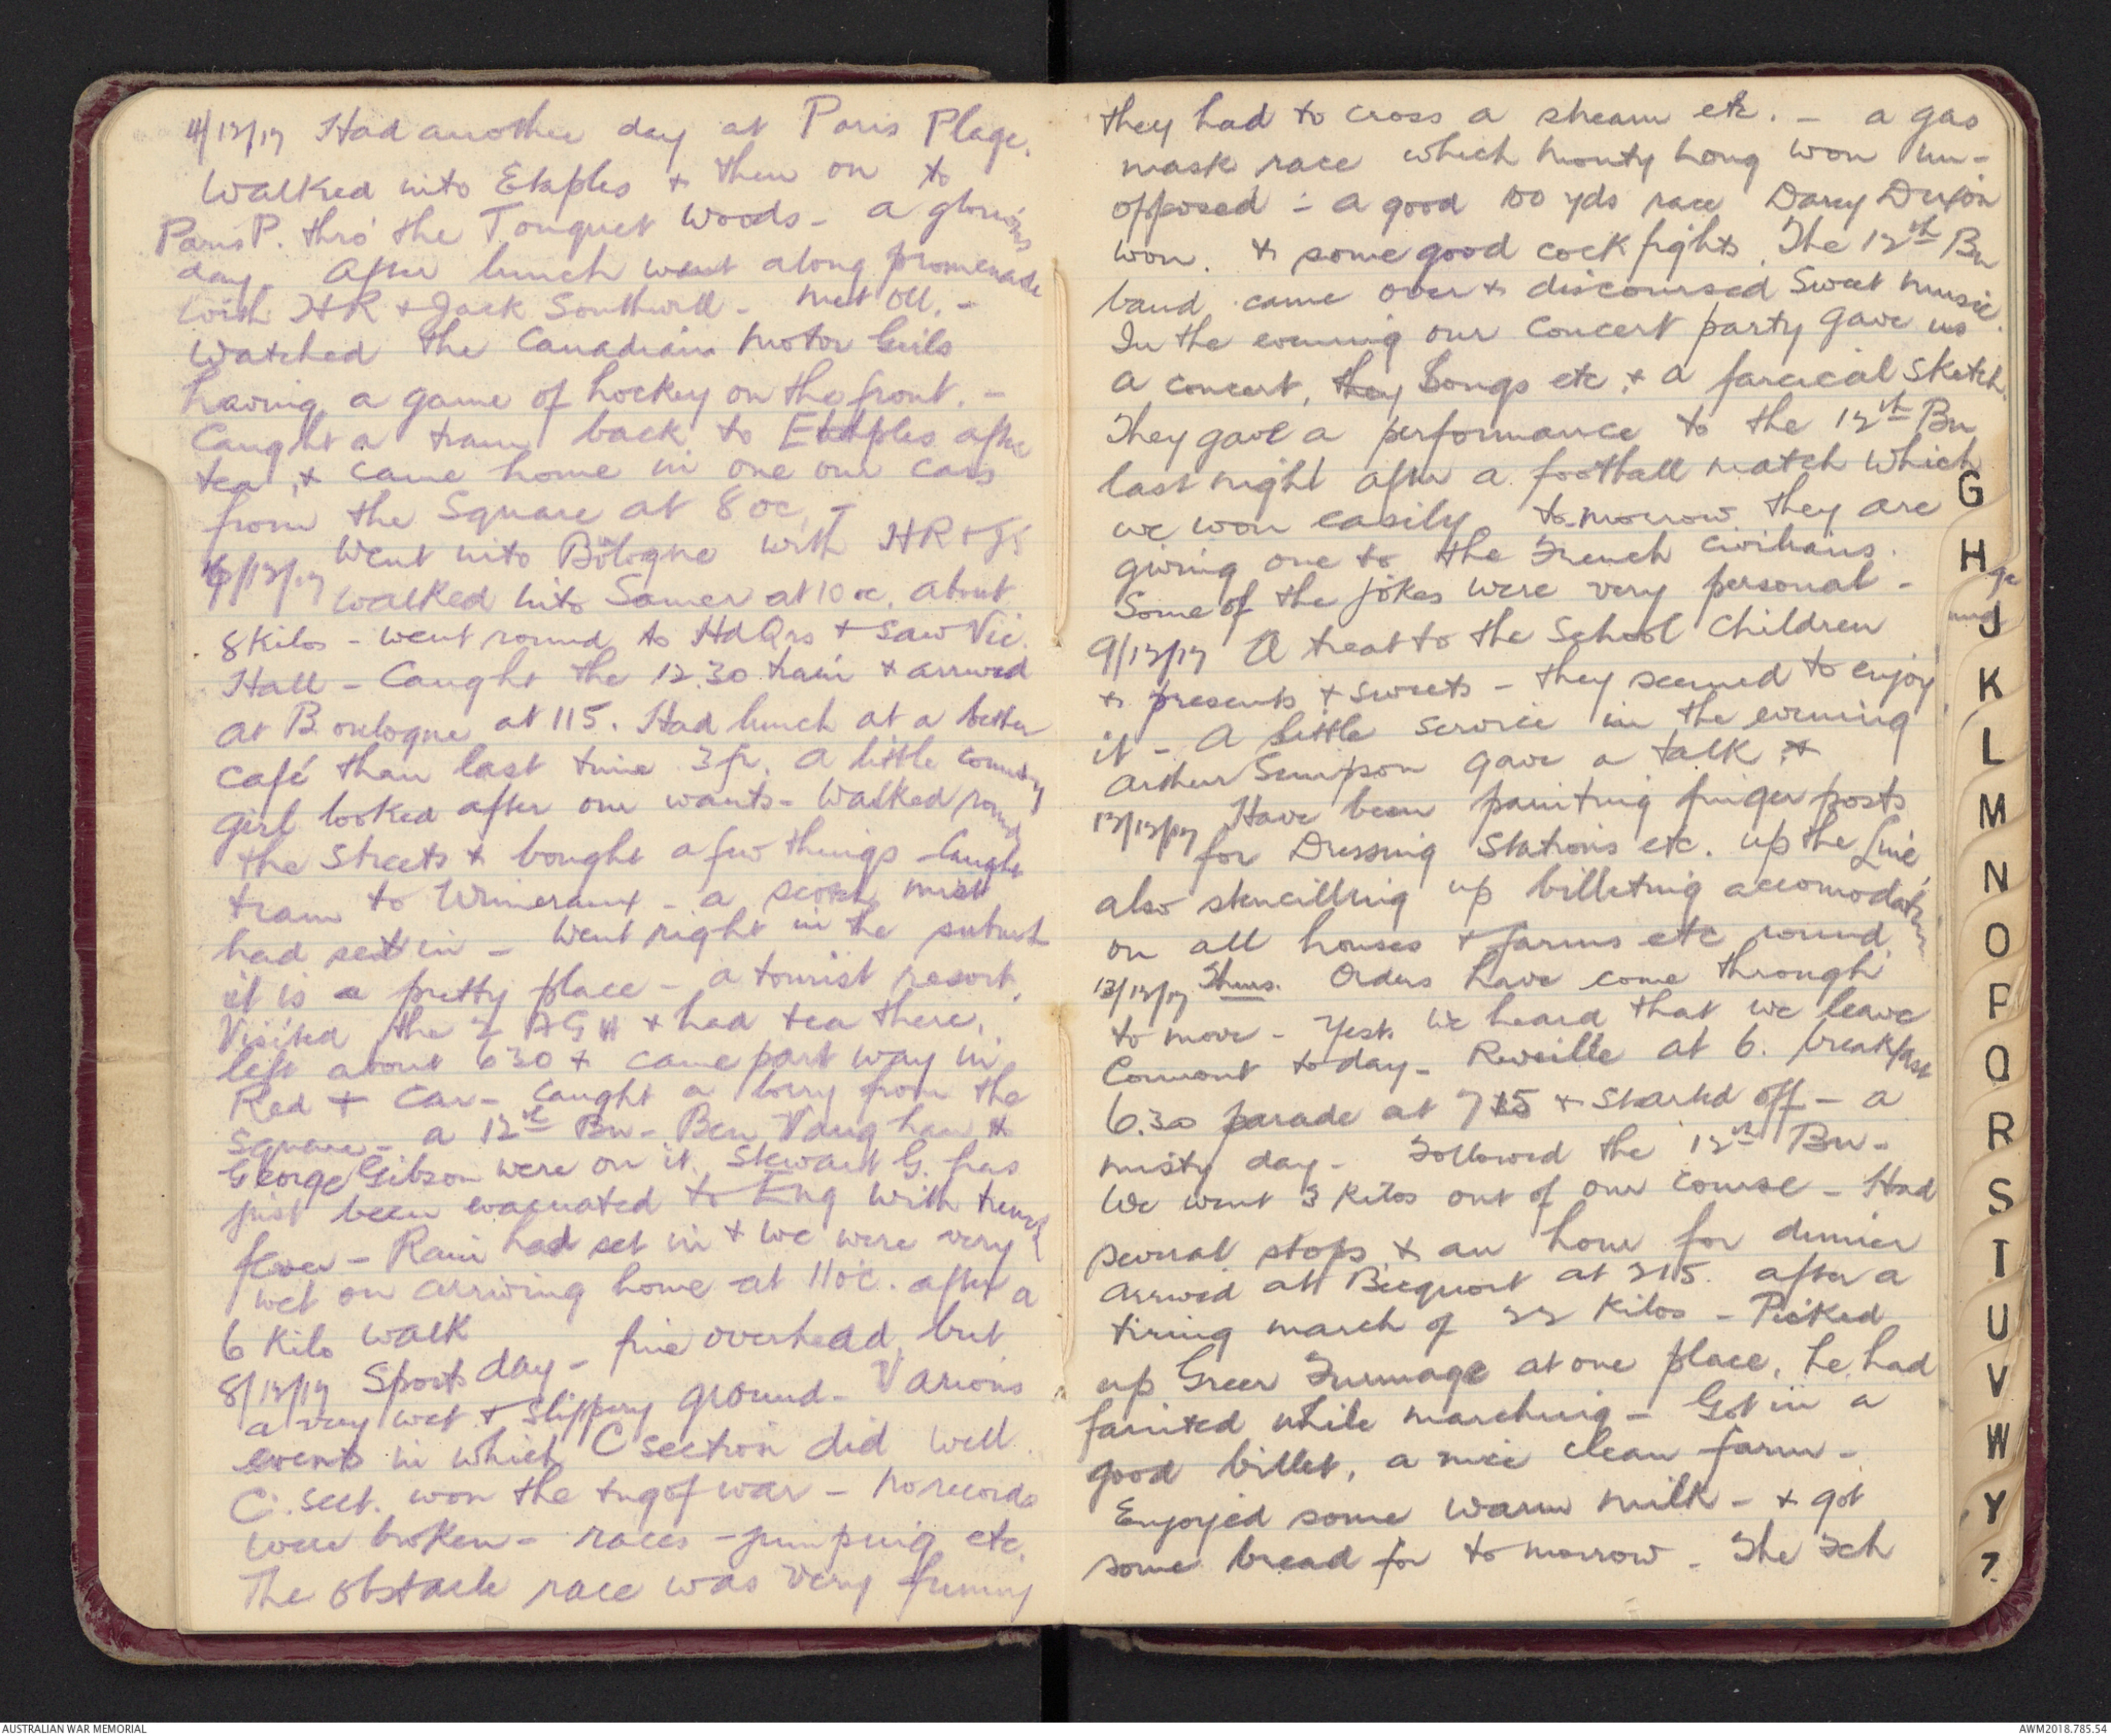 4/12/17 Had another day at Paris Plage.
Walked into Etaples & then on to
Paris P. thro' the Touquet Woods - a glorious
day. After lunch went along promenade
with HR & Jack Southwell - met Oll. -
Watched the Canadian Motor Girls
having a game of hockey on the front. -
Caught a tram back to Etaples after
tea, & came home in one our cars
from the Square at 8 oc. -
6/12/17 Went into Bologne with HR & JS
walked into Samer at 10 oc. about
8 Kilos - went round to HdQrs & saw Vic.
Hall - Caught the 12.30 train & arrived
at Boulogne at 115. Had lunch at a better
café than last time 3 fr. A little country
girl looked after our wants - Walked round
the Streets & bought a few things - Caught
tram to Wimeraux - a scotch mist
had set in - Went right in the suburb
it is a pretty place - a tourist resort.
Visited the 2 AGH & had tea there.
left about 630 & came part way in
Red + Car - Caught a lorry from the
Square - a 12th Bn - Ben Vaughan &
George Gibson were on it. Stewart G. has
just been evacuated to Eng with trench
fever - Rain had set in & we were very
wet on arriving home at 11 oc. after a
6 Kilo walk
8/12/17 Sports day - fine overhead, but
a very wet & slippery ground - Various
events in which C section did well.
C. sect. won the tug of war - no records
were broken - races - jumping etc.
The obstacle race was very funny
they had to cross a stream etc. - a gas
mask race which Monty Long won un-
opposed - a good 100 yds race Darcy Duxon
won. & some good cock fights. The 12th Bn
band came over & discoursed Sweet music.
In the evening our Concert party gave us
a concert, they Songs etc. & a farcical sketch.
They gave a performance to the 12th Bn
last night after a football match which
we won easily to-morrow they are
giving one to the French civilians.
Some of the jokes were very personal -
9/12/17 A treat to the School Children
& presents & sweets - they seemed to enjoy
it - A little service in the evening
Arthur Simpson gave a talk &
12/12/17 Have been painting finger posts
for Dressing Stations etc. up the Line,
also stencilling up billeting accomodation
on all houses & farms etc round
13/12/17 Thurs. Orders have come through
to move - Yest. we heard that we leave
Cormont today - Reveille at 6. breakfast
6.30 parade at 7 15 & started off - a
misty day - Followed the 12th Bn -
We went 3 Kilos out of our course - Had
several stops & an hour for dinner
arrived att Becquort at 215. after a
tiring march of 22 Kilos - Picked
up Greer Furmage at one place, he had
fainted while marching - Got in a
good billet, a nice clean farm -
Enjoyed some warm milk - & got
some bread for to morrow - The Fch
G
H
J
K
L
M
N
O
P
Q
R
S
T
U
V
W
Y
Z
AUSTRALIAN WAR MEMORIAL
AWM2018.785.54